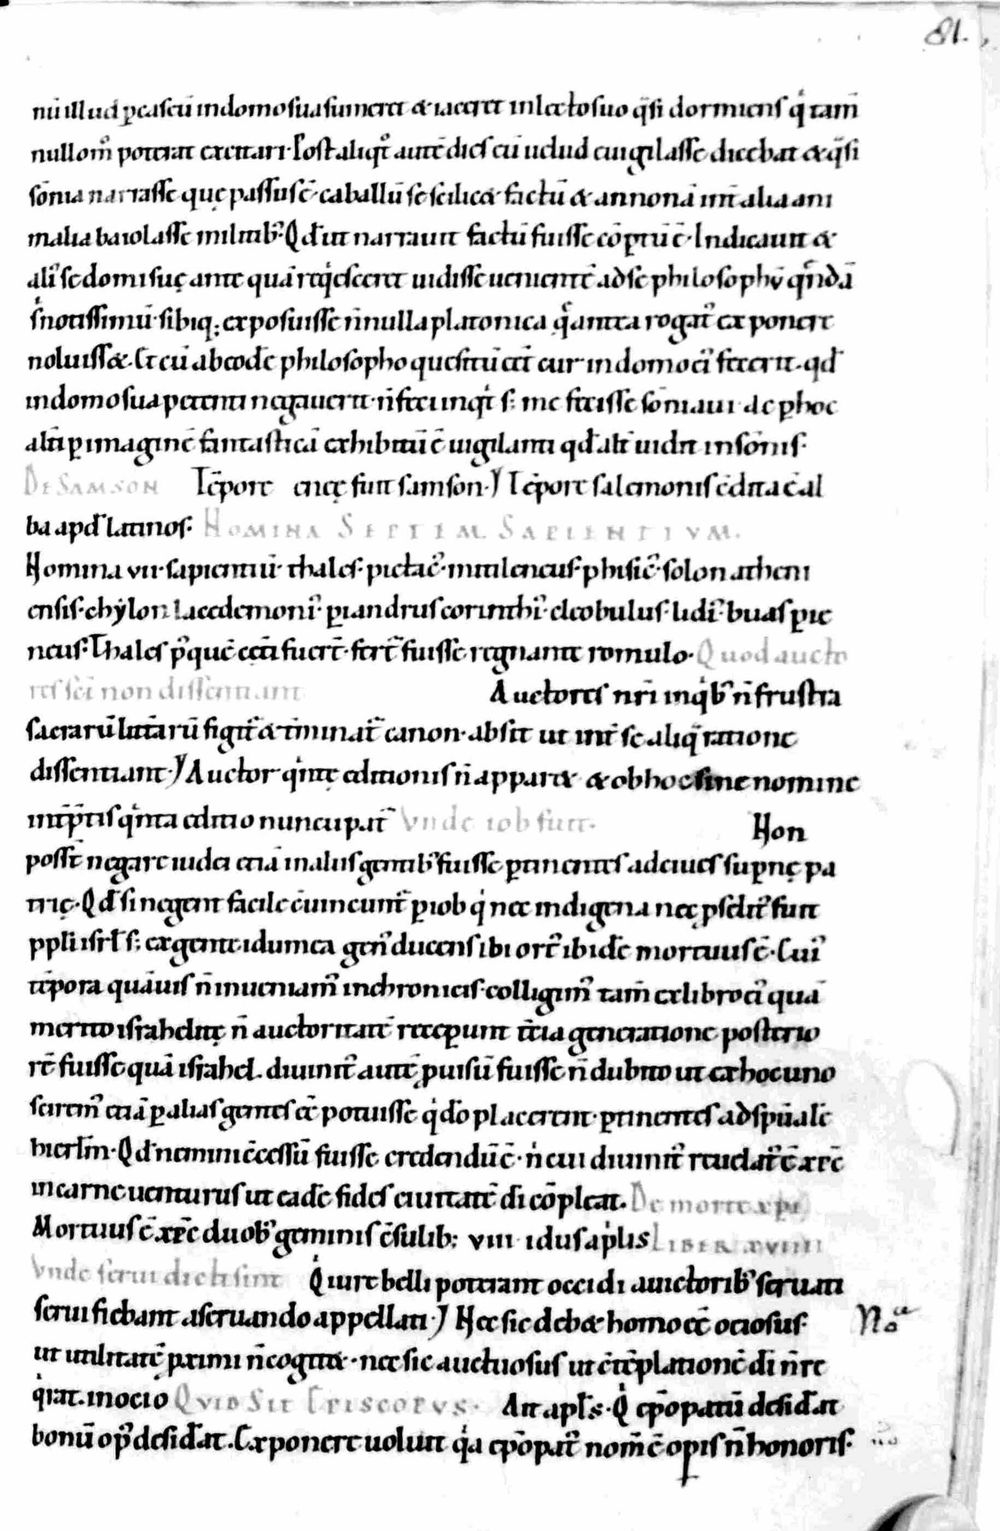 81.
nū illud ꝑ caseū in domo sua sumeret & iaceret in lecto suo q̄si dormiens qͥ tam̄
nullomͦ poterat excitari. Post aliqͦt autē dies eū uelud euigilasse dicebat & q̄si
sōnia narrasse que passus ē. caballū se scilic& factū & annonā int̄ alia ani
malia baiolasse militibꝰ. Qđ ita narrauit factū fuisse cōptū ē. Indicauit &
aliꝰ se domi suę ante quā req̇esceret uidisse uenientē ad se philosophū qͣndā
sͥ notissimū. sibiq; exposuisse ñnulla platonica qͣ antea rogatꝰ exponere
noluiss&. Et cū ab eodē philosopho quesitū eēt cur in domo eiꝰ fecerit. qđ
in domo sua petenti negauerit. ñ feci inqͥt s; me fecisse sōniaui. ac ꝑ hoc
altī ꝑ imaginē fantasticā exhibitū ē uigilanti qđ alt̄ uidit in sōnis.
De Samson Tēpore eneę fuit samson. Tēpore salemonis cōdita ē al
ba apđ latinos. Nomina Septem Sapientium.
Nomina vii sapientiū. thales. pictacꝰ mitileneus. phisicꝰ. solon atheni
ensis. chẏlon lacedemoniꝰ. ꝑiandrus corinthiꝰ. cleobulus. lidiꝰ. buas prie
neus. Thales pͥ quē cet̄i fuer̄t. fert̄ fuisse regnante romulo. Quod aucto
res sc̄i non dissentiant Auctores nr̄i in qͥbꝰ ñ frustra
sacrarū litt̄arū figit̄ & t̄minat̄ canon. absit ut int̄ se aliq̄ ratione
dissentiant. Auctor qͥntę editionis ñ apparet & ob hoc sine nomine
int̄p̄tis qͥnta editio nuncupat̄ Vnde iob fuit. Non
possē negare iudei etiā in aliis gentibꝰ fuisse ꝑtinentes ad ciues supnę pa
trię. Qđ si negent facile cōuincunt̄ ꝑ iob qͥ nec indigena nec pselitꝰ fuit
ppli isrl̄ s; ex gente idumea genꝰ ducens ibi ortꝰ ibidē mortuus ē. Cuiꝰ
tēpora quāuis ñ inueniamꝰ in chronicis. colligimꝰ tam̄ ex libro eiꝰ quā
merito israhelitę ñ auctoritatē receperunt t̄tia generatione posterio
rē fuisse quā israhel. diuinitꝰ autē ꝓuisū fuisse ñ dubito ut ex hoc uno
sciremꝰ etiā ꝑ alias gentes eē potuisse qͥ dō placerent. ꝑtinentes ad spūalē
hierl̄m. Qđ nemini cōcessū fuisse credendū ē. ñ cui diuinitꝰ reuelatꝰ ē xp̄c
in carne uenturus ut eadē fides ciuitatē dī cōpleat. De morte xp̄i
Mortuus ē xp̄c duobꝰ geminis cōsulib; viii idus aplis Liber xviiii
Vnde serui dicti sint Qͥ iure belli poterant occidi a uictoribꝰ seruati
serui fiebant a seruando appellati. Nec sic debet homo eē ociosus.
ut utilitatē pximi ñ cogitet. nec sic actuosus ut cōtēplationē dī ñ re
qͥrat. in ocio Quid Sit Episcopus. Ait apls. Qͥ ep̄opatū desiđat
bonū opꝰ desiđat. Exponere uoluit qͥa ep̄opatꝰ nom̄ ē opis ñ honoris.
Noa